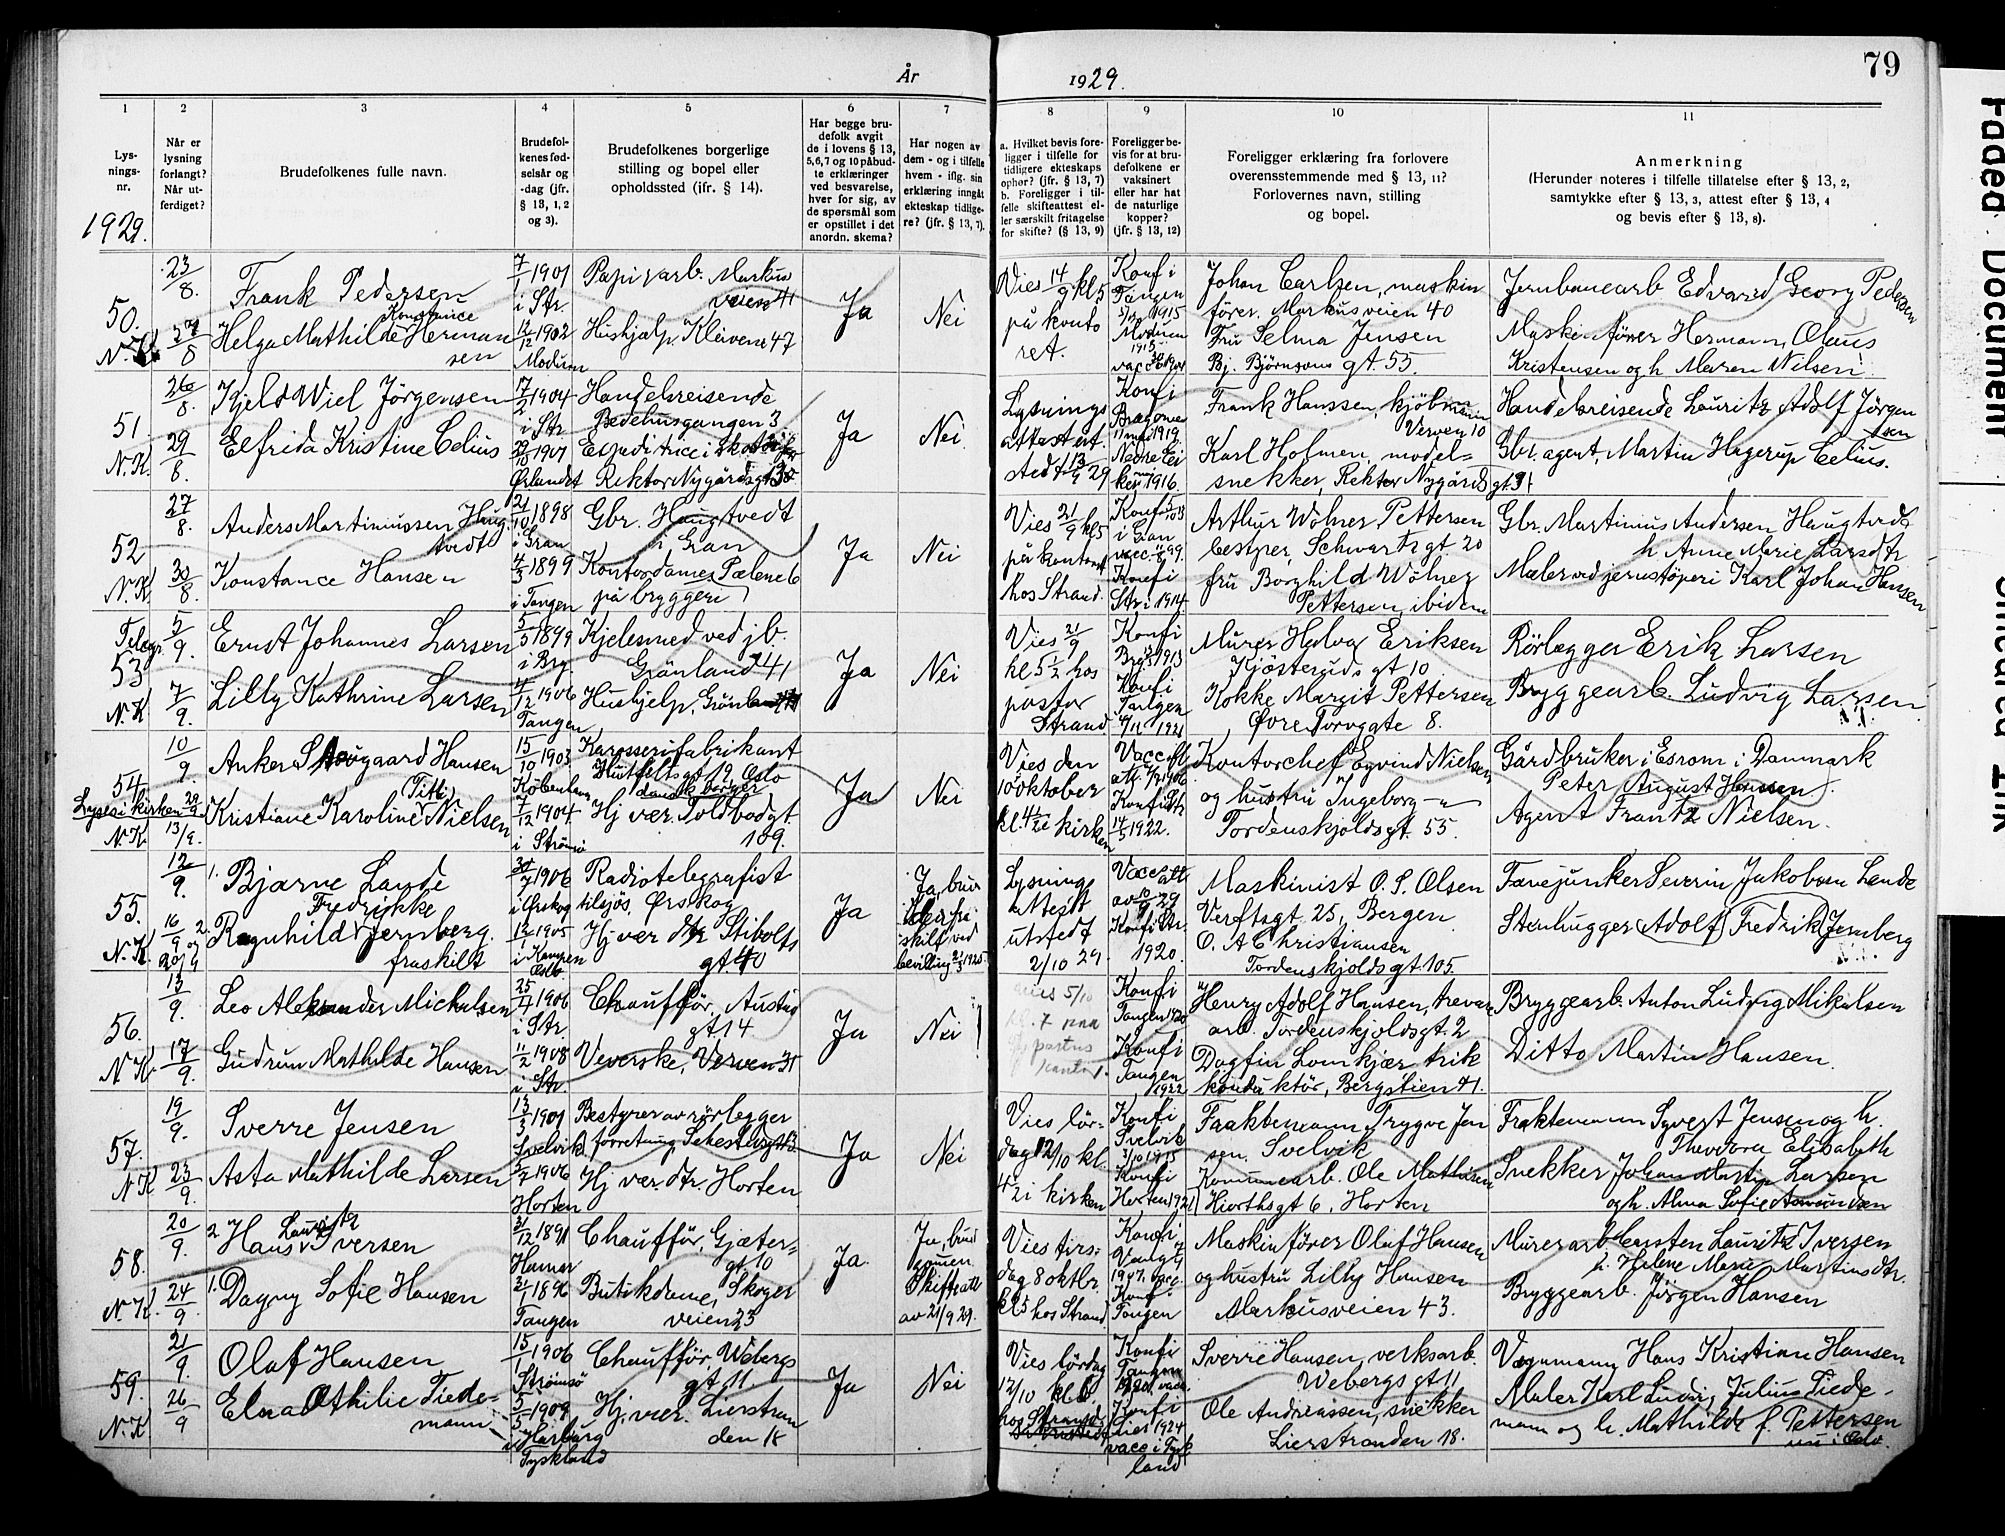 79
År
1929.
1
2
3
4
5
6
7
8
9
10
11
Lys-
nings-
nr.
Når er
lysning
forlangt?
Når ut-
ferdiget?
Brudefolkenes fulle navn.
Brudefol-
kenes fød-
selsår og
-dag (jfr.
§ 13, 1, 2
og 3).
Brudefolkenes borgerlige
stilling og bopel eller
opholdssted (jfr. § 14).
Har begge bru-
defolk avgit
de i lovens § 13,
5, 6, 7 og 10 påbud-
te erklæringer
ved besvarelse,
hver for sig, av
de spørsmål som
er opstillet i det
anordn. skema?
Har nogen av
dem - og i tilfelle
hvem - iflg. sin
erklæring inngått
ekteskap tidlige-
re? (jfr. § 13, 7).
a. Hvilket bevis fore-
ligger i tilfelle for
tidligere ekteskaps
ophør? (jfr. § 13, 7)
b. Foreligger i til-
felle skifteattest el-
ler særskilt fritagelse
for skifte? (§ 13, 9)
Foreligger be-
vis for at bru-
defolkene er
vaksinert
eller har hat
de naturlige
kopper?
(jfr. § 13, 12)
Foreligger erklæring fra forlovere
overensstemmende med § 13, 11?
Forlovernes navn, stilling
og bopel.
Anmerkning
(Herunder noteres i tilfelle tillatelse efter § 13, 2,
samtykke efter § 13, 3, attest efter § 13, 4
og bevis efter § 13, 8).
1929.
50.
N.K.
23/8.
27/8
Frank Pedersen
Helga Mathilde Konstance Herman
sen
7/1 1901
i Str.
12/12 1902
Modum
Papirarb. Markus
veien 41
Hushjelp, Kleivene 47
Ja
Nei
Vies 14/9 kl 5
på konto
ret.
Konf i
Tangen
1915
Modum
Johan Carlsen, maskin
fører. Markusveien 40
Fru Selma Jensen
Bj. Bjørnsons gt. 55.
Jernbanearb Edvard Georg Pedersen
Maskinfører Hermann Olaus
Kristensen og h Maren Nilsen
51
N.K.
26/8.
29/8.
Kjeld Wiel Jörgensen
Elfrida Kristine Celius
17/2 1904
i Str
29/10 1901
Ørlandet
Handelsreisende
Bedehusgangen 3
Rektor Nygårdsgt 30
Ja
Nei
Lysnings
attest ut
stedt 13/9 29
Konf i
Bragernes
1919
1916.
Frank Hanssen, kjöbmann
Verven 10
Karl Holmen, model=
snekker, Rektor Nygårdsgt. 31
Handelsreisende Lauritz Adolf Jörgen
sen
Gbr. agent, Martin Hagerup Celius.
52
N.K
27/8.
30/8.
Anders Martiniussen Haug
tvedt
Konstance Hansen
21/10 1898
i Gran
4/3 1899
i Tangen
Gbr. Haugtvedt
i Gran
Kontordame, Pælene 6
på bryggeri
Ja
Nei
Vies 21/9 kl 5
på kontoret
hos Strand.
Konf
i Gran
Konf i
Str i 1914.
Arthur Wölner Pettersen
bestyrer, Schwartz gt. 20
fru Borghild Wölner
Pettersen, ibidem
Gbr. Martinius Andersen Haugtvedt
h Anne Marie Larsdtr
Maler ved jernstøperi Karl Johan Hansen
53
N.K
5/9.
7/9.
Ernst Johannes Larsen
Lilly Kathrine Larsen
5/5 1899
i Brg.
1906
Tangen
Kjelesmed ved jb.
Grønland 41
Hushjelp, Grønland
Ja
Nei
Vies 21/9
kl 5 1/2 hos
pastor
Strand
Konf i
Brg 1913
Konf i
Tangen
1921
Murer Halvor Eriksen
Kjösteruds gt 10
Kokke Margit Pettersen
Øvre Torvgate 8.
Rörlegger Erik Larsen
Bryggearb. Ludvig Larsen
54
Lyses i kirken 29/9.
N.K
10/9.
13/9.
Anker Skovgaard Hansen
Kristiane Karoline (Titti) Nielsen
15/10 1903
København
7/12 1904
i Strømsø
Karosserifabrikant
Huitfeltsgt 19, Oslo
dansk borger
Hj. vær. Toldbodgt
109.
Ja
Nei
Vies den
10 oktober
kl. 4 1/2 i kirken
Konf i Str
1922.
Kontorchef Eyvind Nielsen
og hustru Ingeborg
Tordenskjoldsgt 55.
Gårdbruker i Esrom i Danmark
Peter August Hansen
Agent Frantz Nielsen.
55.
N.K.
12/9.
16/9 og
20/9
1. Bjarne Lande
2. Ragnhild Fredrikke Jernberg.
fraskilt
1906
i Ørskog
1905
i Kampen
Oslo
Radiotelegrafist
tilsjøs, Ørskog
Hj vær dtr Stibolts
gt 40
Ja
Ja, brur
skilt ved
bevilling
Lysnings
attest
utstedt
2/10 29.
Konf i Str.
1920.
Maskinist O. S. Olsen
Verftsgt. 25, Bergen
O. A Christiansen
Tordenskjoldsgt. 105.
Fanejunker Severin Jakobsen Lande
Stenhugger (Adolf) Fredrik Jernberg
56.
N K
13/9.
17/9.
Leo Aleksander Michelsen
Gudrun Mathilde Hansen
25/4 1906
i Str.
11/2 1908
i Str
Chaufför, Austad
gt 14
Veverske, Verven 31
Ja
Nei
5/10
Konf i
Tangen 1920
Konf i
Tangen
1922
Henry Adolf Hansen, trevare
arb. Tordenskjoldsgt. 2
Dagfin Lomkjær, trik
kondüktör, Bergstien 41.
Bryggearb. Anton Ludvig Mikalsen
Ditto Martin Hansen.
57.
N K
19/9.
23/9.
Sverre Jensen
Asta Mathilde Larsen
13/3 1901
Svelvik
1906
Horten
Bestyrer av rörlegger
forretning, Sehestedsgt 13
Hj. vær. dtr. Horten
Ja
Nei
Vies lör-
dag 12/10 kl.
4 1/2 i kirken
Konf i
Svelvik
1915
Konf i
Horten 1921
Fraktemann Trygve Jen
sen. Svelvik
Komunearb. Ole Mathisen
Hiorthsgt 6, Horten
Fraktemann Syvert Jensen og h.
Theodora Elisabeth
Snekker Johan Martin Larsen
og h. Alma Sofie Amundsen
58.
N K.
20/9.
24/9.
2 Hans Lauritz Iversen
1. Dagny Sofie Hansen
31/12 1891
Hamar
31/1 1896
Tangen
Chaufför, Gjæter=
gt. 10
Butikdame, Skoger
veien 23
Ja.
Skifteatt
av 21/9 29.
Vies tirs-
dag 8 oktbr.
kl 5 hos Strand
Konf i
Vang
1907. vacc.
Konf i
Tangen
Maskinfører Olaf Hansen
og hustru Lilly Hansen
Markusveien 43.
Murerarb Karsten Lauritz Iversen
h. Helene Marie Martinsdtr.
Bryggearb. Jörgen Hansen
59.
N.K
21/9.
26/9
Olaf Hansen
Elna Othilie Tiede-
mann
15/1 1906
Strømsø
5/5 1909
i Harburg
Tyskland
Chaufför, Webergs
gt 11
Hj. vær. Lierstran
den 18
Ja
Nei
Vies lördag
12/10 kl 5
hos Strand
Konf i
Tangen
Konf i
Lier 1924
vacc i Tysk
land
Sverre Hansen, verksarb.
Webergsgt 11
Ole Andreassen, snekker
Lierstranden 18.
Vognmann Hans Kristian Hansen
Maler Karl Ludvig Julius Tiede-
mann og h. Mathilde f. Pettersen
nu i Oslo.
Faded Document